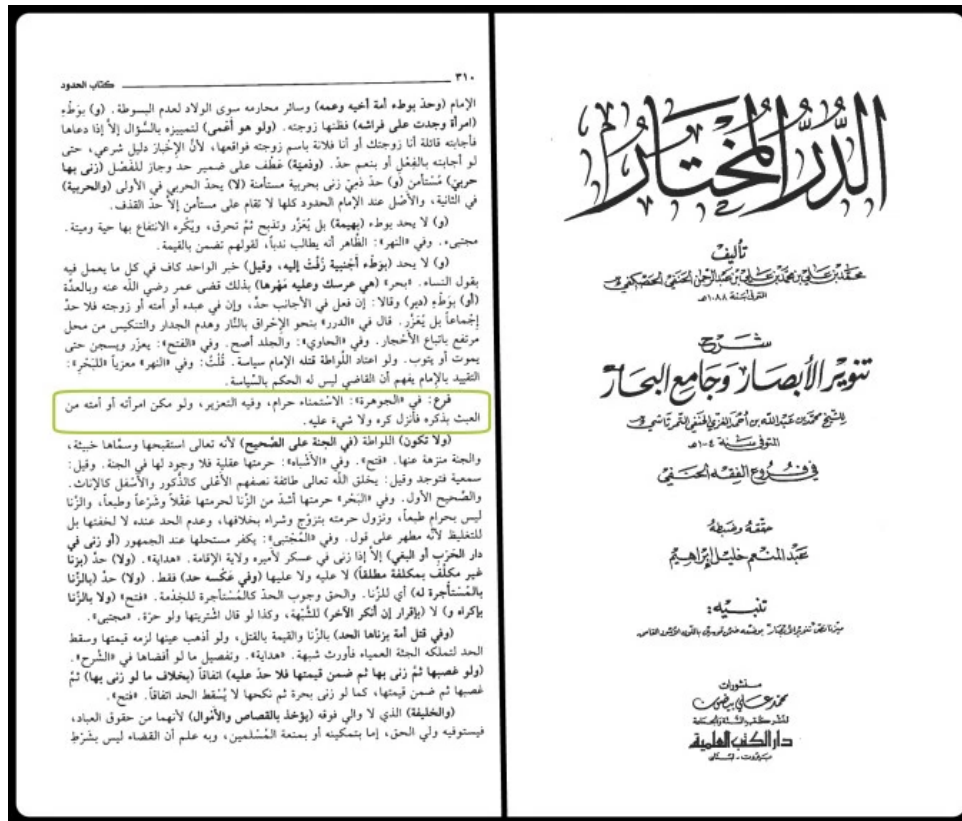 الدر المختار
تأليف
محمد بن علي بن محمد بن علي بن عبد الرحمن الحنفي الحصكفي
المتوفى سنة ١٠٨٨هـ
شرح
تنوير الأبصار وجامع البحار
للشيخ محمد بن عبد الله بن أحمد الغزي الحنفي التمرتاشي
المتوفى سنة ١٠٠٤هـ
في فروع الفقه الحنفي
حققه وضبطه
عبد المنعم خليل إبراهيم
تنبيه:
منشورات
محمد علي بيضون
لنشر كتب السنة والجماعة
دار الكتب العلمية
بيروت - لبنان
٣١٠ كتاب الحدود
الإمام (وحد بوطء أمة أخيه وعمه) وسائر محارمه سوى الولاد لعدم البسوطة. (و) بوَطْءِ
(امرأة وجدت على فراشه) فظنها زوجته. (ولو هو أعمى) لتمييزه بالسؤال إلاَّ إذا دعاها
فأجابته قائلة أنا زوجتك أو أنا فلانة باسم زوجته فواقعها، لأنَّ الإخبار دليل شرعي، حتى
لو أجابته بالفِعْل أو بنعم حدَّ. (وذمية) عَطْف على ضمير حد وجاز للفَصْل (زنى بها
حربيّ) مُسْتأمن (و) حدَّ ذميّ زنى بحربية مستأمنة (لا) يحدّ الحربي في الأولى (والحربية)
في الثانية، والأصْل عند الإمام الحدود كلها لا تقام على مستأمن إلاَّ حدَّ القذف.
(و) لا يحد بوطء (بهيمة) بل يُعَزَّر وتذبح ثمَّ تحرق، ويُكْره الانتفاع بها حية وميتة.
مجتبى». وفي «النهر»: الظَّاهر أنه يطالب ندباً، لقولهم تضمن بالقيمة.
(و) لا يحد (بوَطْء أَجْنبية زُفَّتْ إليه، وقيل) خبر الواحد كاف في كل ما يعمل فيه
بقول النساء. «بحر» (هي عرسك وعليه مَهْرها) بذلك قضى عمر رضي الله عنه وبالعدَّة
(أو) بوَطْءِ (دبر) وقالا: إن فعل في الأجانب حدَّ، وإن في عبده أو أمته أو زوجته فلا حدَّ
إجْماعاً بل يُعَزَّر. قال في «الدرر» بنحو الإحْراق بالنَّار وهدم الجدار والتنكيس من محل
مرتفع باتباع الأحْجار. وفي «الحاوي»: والجلد أصح. وفي «الفتح»: يعزَّر ويسجن حتى
يموت أو يتوب. ولو اعتاد اللِّواطة قتله الإمام سياسة. قُلْتُ: وفي «النهر» معزياً «للبَحْر»:
التقييد بالإمام يفهم أن القاضي ليس له الحكم بالسِّياسة.
فرع: في «الجوهرة»: الاسْتمناء حرام، وفيه التعزير، ولو مكن امرأته أو أمته من
العبث بذكره فأنزل كره ولا شيءَ عليه.
(ولا تكون) اللواطة (في الجنة على الصَّحيح) لأنه تعالى استقبحها وسمَّاها خبيثة،
والجنة منزهة عنها. «فتح». وفي «الأشْباه»: حرمتها عقلية فلا وجود لها في الجنة. وقيل:
سمعية فتوجد وقيل: يخلق الله تعالى طائفة نصفهم الأعْلى كالذُّكور والأسْفل كالإناث.
والصَّحيح الأول. وفي «البَحْر» حرمتها أشدّ من الزِّنا لحرمتها عَقْلاً وشَرْعاً وطبعاً، والزِّنا
ليس بحرام طبعاً، وتزول حرمته بتزوّج وشراء بخلافها، وعدم الحد عنده لا لخفتها بل
للتغليظ لأنَّه مطهر على قول. وفي «المُجْتبى»: يكفر مستحلها عند الجمهور (أو زنى في
دار الحَرْب أو البغي) إلاَّ إذا زنى في عسكر لأميره ولاية الإقامة. «هداية». (ولا) حدَّ (بزنا
غير مكلَّف بمكلفة مطلقاً) لا عليه ولا عليها (وفي عَكْسه حد) فقط. (ولا) حدَّ (بالزِّنا
بالمُسْتأجرة له) أي للزِّنا. والحق وجوب الحدّ كالمُسْتأجرة للخِدْمة. «فتح» (ولا بالزِّنا
بإكراه و) لا (بإقرار إن أنكر الآخر) للشُّبْهة، وكذا لو قال اشْتريتها ولو حرّة. «مجتبى».
(وفي قتل أمة بزناها الحد) بالزِّنا والقيمة بالقتل، ولو أذهب عينها لزمه قيمتها وسقط
الحد لتملكه الجثة العمياء فأورث شبهة. «هداية». وتفصيل ما لو أفضاها في «الشَّرح».
(ولو غصبها ثمَّ زنى بها ثم ضمن قيمتها فلا حدَّ عليه) اتفاقاً (بخلاف ما لو زنى بها) ثمَّ
غصبها ثم ضمن قيمتها، كما لو زنى بحرة ثم نكحها لا يُسْقط الحد اتفاقاً. «فتح».
(والخليفة) الذي لا والي فوقه (يؤخذ بالقصاص والأمْوال) لأنهما من حقوق العباد،
فيستوفيه ولي الحق، إما بتمكينه أو بمنعة المُسْلمين، وبه علم أن القضاء ليس بشَرْط